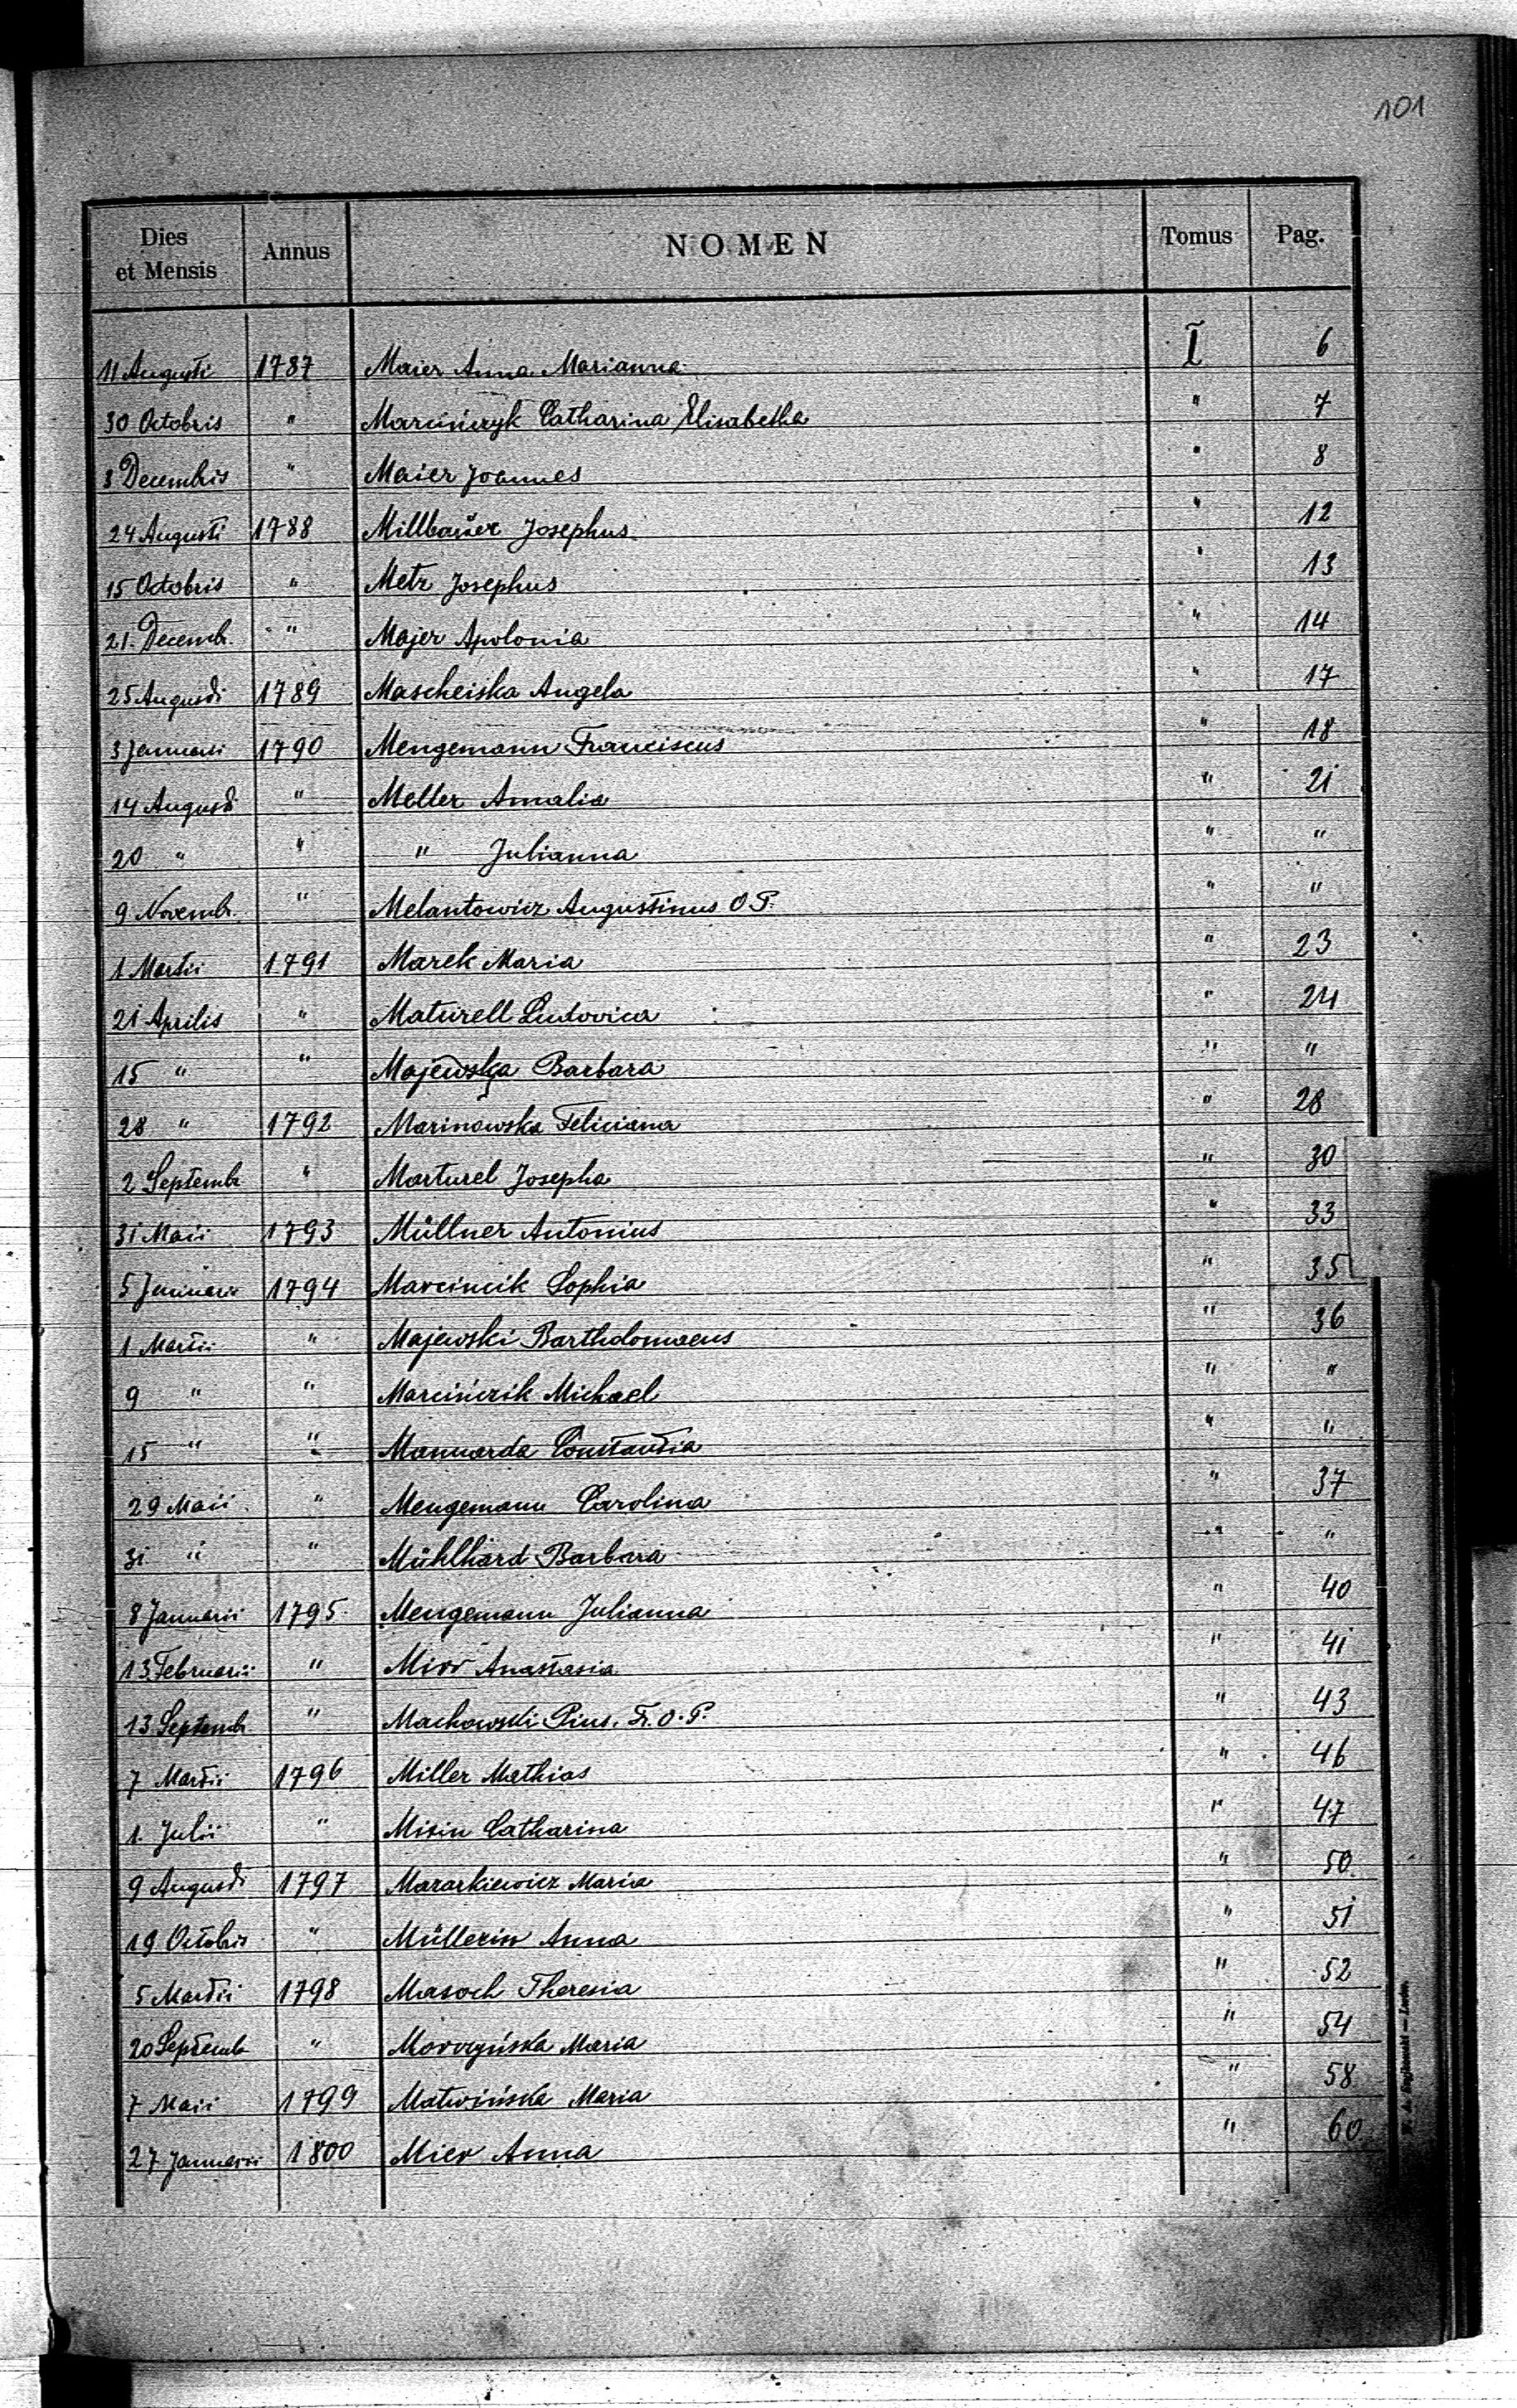 101
Dies et Mensis Annus NOMEN Tomus Pag.
11 Augusti 1787 Maier Anna Marianna I 6
30 Octobris " Marcińczyk Catharina Elisabetha " 7
3 Decembris " Maier Joannes " 8
24 Augusti 1788 Millbaŭer Josephus " 12
15 Octobris " Metz Josephus " 13
21. Decemb. " Majer Apolonia " 14
25 Augusti 1789 Mascheiska Angela " 17
3 Januari 1790 Mengemann Franciscus " 18
14 Augusti " Meller Annalia " 21
20 " " " Julianna " "
9 Novemb. " Melantowicz Augustinus O.P. " "
1 Martii 1791 Marek Maria " 23
21 Aprilis " Maturell Ludovica " 24
15 " " Majewska Barbara " "
28 " 1792 Marinowska Feliciana " 28
2 Septemb " Marturel Josepha " 30
31 Maii 1793 Müllner Antonius " 33
5 Januarii 1794 Marcincik Sophia " 35
1 Martii " Majewski Bartholomaeus " 36
9 " " Marcińczik Michael " "
15 " " Mannarda Constantia " "
29 Maii " Mengemann Carolina " 37
31 " " Mühlhard Barbara " "
8 Januarii 1795 Mengemann Julianna " 40
13 Februarii " Mirr Anastasia " 41
13 Septemb " Machowski Pius. Fr. O. P. " 43
7 Martii 1796 Miller Mathias " 46
1. Julii " Misin Catharina " 47
9 Augusti 1797 Mazarkiewicz Maria " 50
19 Octobris " Müllerin Anna " 51
5 Martii 1798 Masoch Theresia " 52
20 Septemb " Morczyńska Maria " 54
7 Maii 1799 Matwińska Maria " 58
27 Januarii 1800 Mier Anna " 60